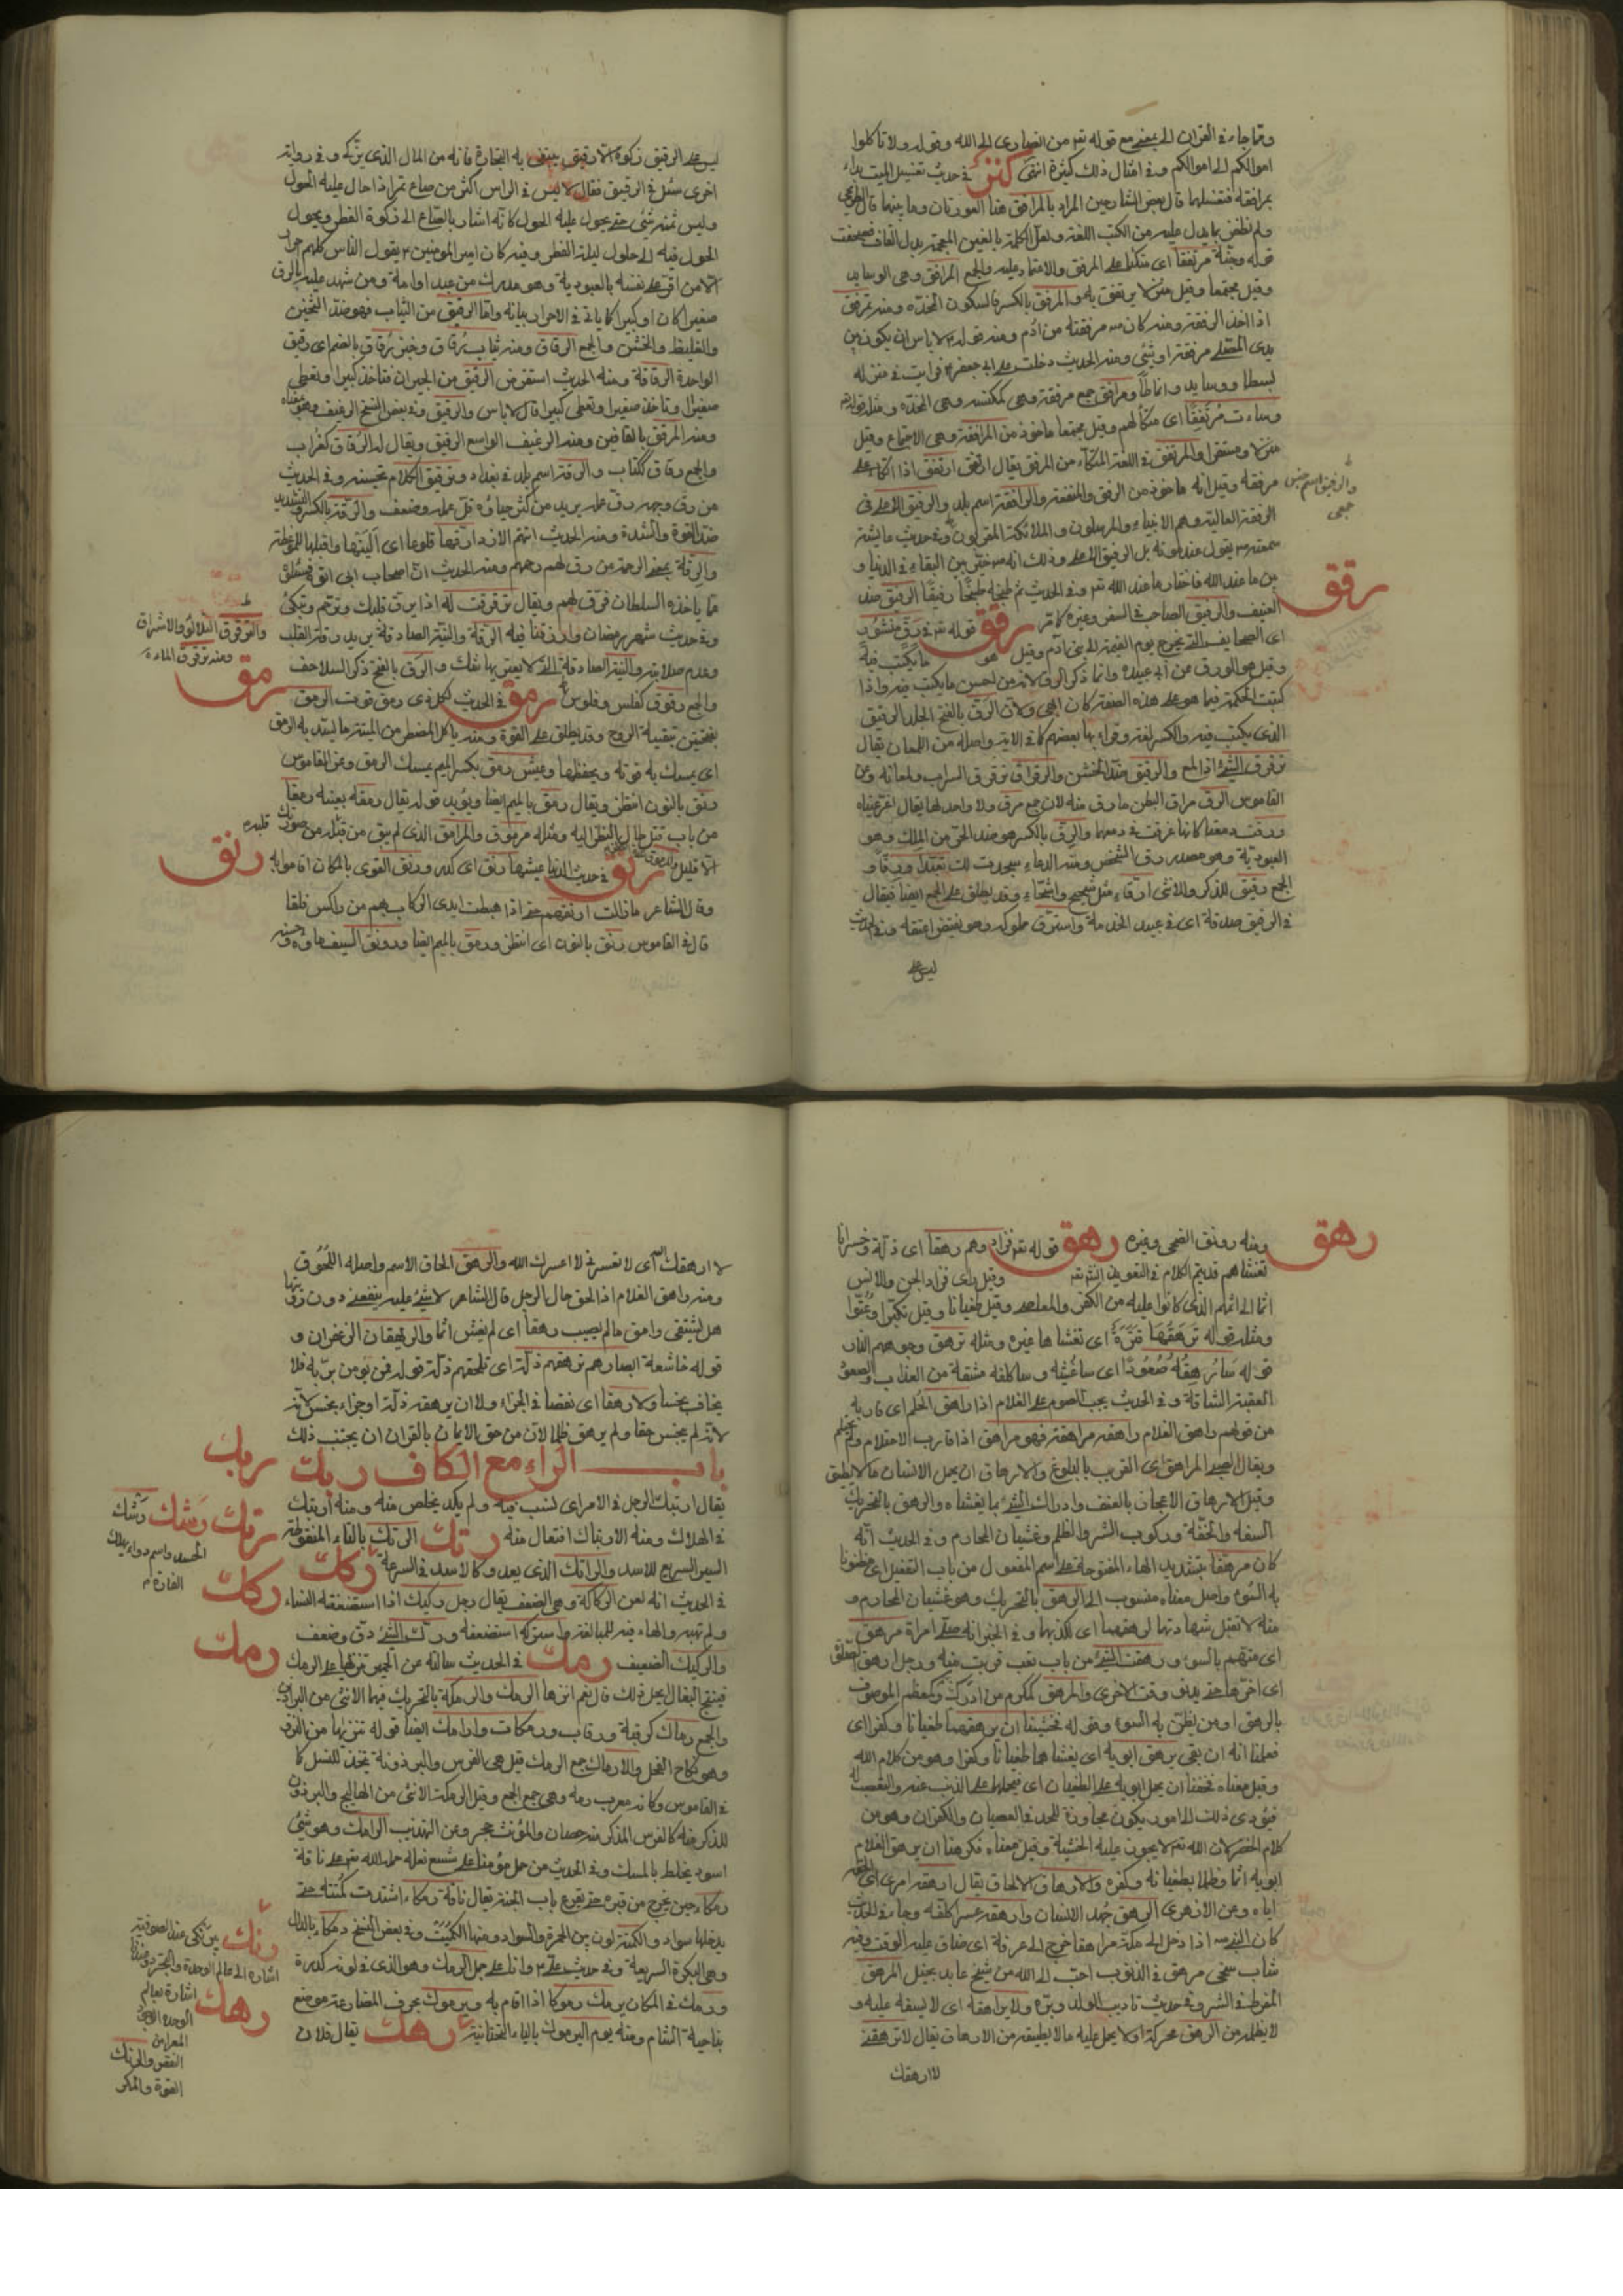 ومما جاء في القران الى بمعنى مع قوله تعه من انصاري الى الله وقوله ولا تاكلوا
اموالكم الى اموالكم وفي امثال ذلك كثيرة انتهى في حديث تغسيل الميت
بمرافقه فتغسلها قال بعض الشارحين المراد بالمرافق هنا العورتان وما بينهما قال
ولم نظفر بما يدل عليه من الكتب اللغة ولعل الكلمة بالغين المعجمة بدل القاف فصحفت
قوله مرتفقا اى متكئا على المرفق والاعتماد عليه والجمع المرافق وهى الوسايد
وقيل مجتمعا وقيل منزلا يرتفق به والمرفق بالكسر فالسكون المخدة ومنه ترفق
اذا اخذ المرفقة ومنه كان مرفقته من ادم ومنه قوله لا باس ان يكون بين
يدى المصلى مرفقة او شئ ومنه الحديث دخلت على ابى جعفر فرايت في منزله
بسطا ووسايد وانماطا ومرافق جمع مرفقة وهى كمكنسة وهى المخدة ومثله قوله
وساءت مرتفقا اى متكأ لهم وقيل مجتمعا ماخوذ من المرافقة وهى الاجتماع وقيل
منزلا ومستقرا والمرتفق في اللغة المتكأ من المرفق يقال ارتفق اذا اتكاء على
مرفقه وقيل انه ماخوذ من الرفق والمنفعة والرافقة اسم بلد والرفيق الاعلى في
الرفقة العالية وهم الانبياء والمرسلون والملائكة المقربون وفي حديث عايشة
سمعته يقول عند موته بل الرفيق الاعلى وذلك انه خير بين البقاء في الدنيا و
بين ما عند الله فاختار ما عند الله تعه وفي الحديث ثم طبخه طبخا رفيقا الرفيق ضد
العنيف والرفيق الصاحب في السفر وغيره كما مر رقق قوله تعه في رق منشور
اى الصحايف التى تخرج يوم القيمة الى بنى آدم وقيل هو ما يكتب فيه
وقيل هو الورق عن ابى عبيدة وانما ذكر الرق لانه من احسن ما يكتب فيه واذا
كتبت الحكمة فيما هو على هذه الصفة كان ابهى ولان الرق بالفتح الجلد الرقيق
الذى يكتب فيه والكسر لغة وقراء بها بعضهم كما في الاية واصله من اللمعان يقال
ترقرق الشئ اذا لمع والرقيق ضد الخشن والرقراق ترقرق السراب ولمعانه وعن
القاموس الرق مراق البطن ما رق منه لان جمع مرق ولا واحد لها يقال
ورقت دمعها كانها غرقت في دمعها والرق بالكسر هو ضد الحر من الملك وهو
العبودية وهو مصدر رق الشخص ومنه الدعاء سجدت لك تعبدا ورقا و
الجمع رقيق للذكر والانثى ارقاء مثل شحيح واشحاء وقد يطلق على الجمع ايضا فيقال
في الرقيق صدقة اى في عبيد الخدمة واسترق مملوكه وهو نقيض اعتقه وفي الحديث
ليس على
والرفيق اسم جنس
جمعى
رقق
ليس على الرقيق زكوة الا رقيق يبتغى به التجارة فانه من المال الذى يزكى وفي رواية
اخرى سئل في الرقيق فقال لا ليس في الراس اكثر من صاع تمر اذا حال عليه الحول
وليس ثمنه شئ حتى يحول عليه الحول كانه اشار بالصاع الى زكوة الفطر وبحول
الحول فيه الى حلول ليلة الفطر وفيه كان امير المؤمنين ع يقول الناس كلهم احرار
الا من اقر على نفسه بالعبودية وهو مدرك من عبد او امة ومن شهد عليه بالرق
صغيرا كان او كبيرا كما ياتى في الاحرار بيانه واما الرقيق من الثياب فهو ضد الثخين
والغليظ والخشن والجمع الرقاق ومنه ثياب رقاق وخبز رقاق بالضم اى رقيق
الواحدة الرقاقة ومنه الحديث استقرض الرقيق من الجيران فناخذ كبيرا ونعطى
صغيرا وناخذ صغيرا ونعطى كبيرا قال لا باس والرقيق وفي بعض النسخ الرغيف وهو معناه
ومنه المرقق بالقافين ومنه الرغيف الواسع الرقيق ويقال له الرقاق كغراب
والجمع رقاق ككتاب والرقة اسم بلد في بغداد وترقيق الكلام تحسينه وفي الحديث
من رق وجهه رق علمه يريد من كثر حياؤه قل علمه وضعف والرقة بالكسر والتشديد
ضد القوة والشدة ومنه الحديث انتم الاند ارقها قلوبا اى الينها واقبلها للموعظة
والرقة بمعنى الرحمة من رق لهم رحمهم ومنه الحديث ان اصحاب ابى اتوه فسئلوا
عما ياخذه السلطان فرق لهم ويقال ترقرقت له اذا يرق قلبك وترحم وتبكى
وفي حديث شهر رمضان وارزقنا فيه الرقة والنية الصادقة يريد رقة القلب
وعدم صلابته والنية الصادقة التى لا يعتريها شك والرق بالفتح ذكر السلاحف
والجمع رقوق كفلس وفلوس رمق في الحديث لكل ذى رمق قوت الرمق
بفتحتين بقية الروح وقد يطلق على القوة ومنه ياكل المضطر من الميتة ما يسد به الرمق
اى يمسك به قوته ويحفظها وعيش رمق بكسر الميم يمسك الرمق وعن القاموس
رنق بالنون انتظر ويقال رمق بالميم ايضا ويؤيد قوله يقال رمقه بعينه رمقا
من باب قتل اطال النظر اليه ومثله مرموق والمرامق الذى لم يبق من قبله من مودتك
الا قليل رنق في حديث الدنيا عيشها رنق اى كدر ورنق القوى بالمكان اقاموا به
وقال الشاعر ما زالت ارمقهم حتى اذا هبطت ايدى الركاب بهم من راكس فلقا
قال في القاموس رنق بالنون اى انتظر ورمق بالميم ايضا ورونق السيف ماؤه وحسنه
والترقرق التلألؤ والاشراق
ومنه ترقرق الماء
رمق
قليده
رنق
ومنه رونق الضحى وغيره رهق قوله تعه فزادوهم رهقا اى ذلة وخسرانا
تغشاهم قديم الكلام في التعويذ وقيل راى فزاد الجن والانس
اثما الى اثمهم الذى كانوا عليه من الكفر والمعاصى وقيل طغيانا وقيل تكبرا وعتوا
ومثله قوله ترهقها قترة اى تغشاها غبرة ومثله ترهق وجوههم النار
قوله سارهقه صعودا اى ساغشيه وساكلفه مشقة من العذاب والصعود
العقبة الشاقة وفي الحديث يجب الصوم على الغلام اذا راهق الحلم اى قاربه
من قولهم راهق الغلام راهقه مراهقة فهو مراهق اذا قارب الاحتلام ولم يحتلم
ويقال لصبى المراهق اى القريب بالبلوغ والارهاق ان يحمل الانسان ما لا يطيق
وقيل الارهاق الاعجال بالعنف وادراك الشئ بما يغشاه والرهق بالتحريك
السفه والخفة وركوب الشر والظلم وغشيان المحارم وفي الحديث انه
كان مرهقا بتشديد الهاء المفتوحة على اسم المفعول من باب التفعيل اى مظنونا
به السوء واصل معناه منسوب الى الرهق بالتحريك وهو غشيان المحارم و
منه لا تقبل شهادتها لرهقها اى لكذبها وفي الخبر انه صلى على امراة مرهق
اى متهم بالسوء ورهقت الشئ من باب تعب قربت منه ورجل ارهق الصلوة
اى اخرها حتى يدنو وقت الاخرى والمرهق كمكرم من ادرك وكمعظم الموصوف
بالرهق او من يظن به السوء وقوله فخشينا ان يرهقهما طغيانا وكفرا اى
فعلمنا انه ان بقى يرهق ابويه اى يغشاهما طغيانا وكفرا وهو من كلام الله
وقيل معناه فخفنا ان يحمل ابويه على الطغيان اى فيحملهما على الذب عنه والتعصب له
فيؤدى ذلك الى امور يكون مجاوزة للحد في العصيان والكفران وهو من
كلام الخضر لان الله تعه لا يجوز عليه الخشية وقيل معناه فكرهنا ان يرهق الغلام
ابويه اثما وظلما بطغيانه وكفره والارهاق الالحاق يقال ارهقه امرى اى الحقه
اياه وعن الازهرى الرهق جهد الانسان وارهقه عسرا كلفه وجاء في الحديث
كان النبى اذا دخل الى مكة مراهقا خرج الى عرفة اى ضاق عليه الوقت وفيه
شاب سخى مرهق في الذنوب احب الى الله من شيخ عابد بخيل المرهق
المفرط في الشر وفي حديث تاديب الولد وبره ولا يراهقه اى لا يسفه عليه و
لا يظلمه من الرهق محركة او لا يحمل عليه ما لا يطيقه من الارهاق يقال لا ترهقنى
لا ارهقك
رهق
لا ارهقك الله اى لا تعسرنى لا اعسرك الله والرهق الحاق الاسم واصله اللحوق
ومنه راهق الغلام اذا لحق حال الرجل قال الشاعر لا شئ عليه ينفعنى دون رؤيتها
هل يشتفى وامق ما لم يصب رهقا اى لم يغش اثما والريهقان الزعفران و
قوله خاشعة ابصارهم ترهقهم ذلة اى تلحقهم ذلة قوله فمن يؤمن بربه فلا
يخاف بخسا ولا رهقا اى نقصا في الجزاء ولا ان يرهقه ذلة او جزاء بخس لانه
لانه لم يبخس حقا ولم يرهق ظلما لان من حق الايمان بالقران ان يجتنب ذلك
باب الراء مع الكاف ربك
يقال ارتبك الرجل في الامر اى نشب فيه ولم يكد يخلص منه ومنه ارتبك
في الهلاك ومنه الارتباك افتعال منه رتك الرتك بالتاء المنقوطة
السير السريع للاسد والراتك الذى يعدو كالاسد في السرعة ركك
في الحديث انه لعن الركاكة وهى الضعف يقال رجل ركيك اذا استضعفه النساء
ولم تهبه والهاء فيه للمبالغة واستركه استضعفه ورك الشئ دق وضعف
والركيك الضعيف رمك في الحديث سالته عن الحمير تنزيها على الرمك
فينتج البغال ايحل ذلك قال نعم انزها الرمك والرمكة بالتحريك فيهما الانثى من البراذين
والجمع رماك كرقبة ورقاب ورمكات وارماك ايضا قوله تنزيها من النزو
وهو نكاح الفحل والارماك جمع الرمك قيل هى الفرس والبرذونة تتخذ للنسل كما
في القاموس وكانه معرب رمه وهى جمع الجمع وقيل الرمكة الانثى من الهاليج والبرذون
للذكر منه كالفرس المذكر منه حصان والمؤنث حجر وعن التهذيب الرامك وهو شئ
اسود يخلط بالمسك وفي الحديث من حمل مؤمنا على شسع نعله حمله الله تعه على ناقة
رمكاء حين يخرج من قبره حتى يقرع باب الجنة يقال ناقة رمكاء اشتدت كمتته حتى
يدخلها سواد والكمتة لون بين الحمرة والسواد ومنها الكميت وفي بعض النسخ دمكاء بالدال
وهى البكرة السريعة وفي حديث على ع وانا على جمل الرمك وهو الذى في لونه كدرة
ورمك في المكان يرمك رموكا اذا اقام به ويرموك بحرف المضارعة موضع
بناحية الشام ومنه يوم اليرموك بالياء التحتانية رهك يقال فلان
ربك
رتك رشك رشك
الحسد واسم دواء يهلك
الفارة م
ركك
رمك
رنك
اشارة الى عالم الوحدة
اشارة بعالم
رهك
النقص والرنك
القوة والمكر